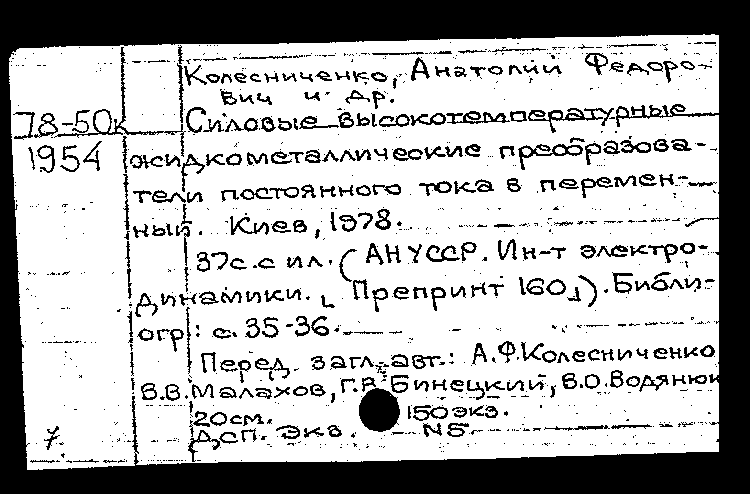 Колесниченко, Анатолий Федоро-
вич и др.
78-50к Силовые высокотемпературные
1954 жидкометаллические преобразова-
тели постоянного тока в перемен-
ный. Киев, 1978.
37с. с ил. (АН УССР. Ин-т электро-
динамики. [Препринт 160]). Библи-
огр.: с. 35-36.
Перед. загл. авт.: А.Ф.Колесниченко
В.В.Малахов, Г.В.Бинецкий, В.О.Водянюк
20см. 150 экз.
7. ДСП. Экз. N5.